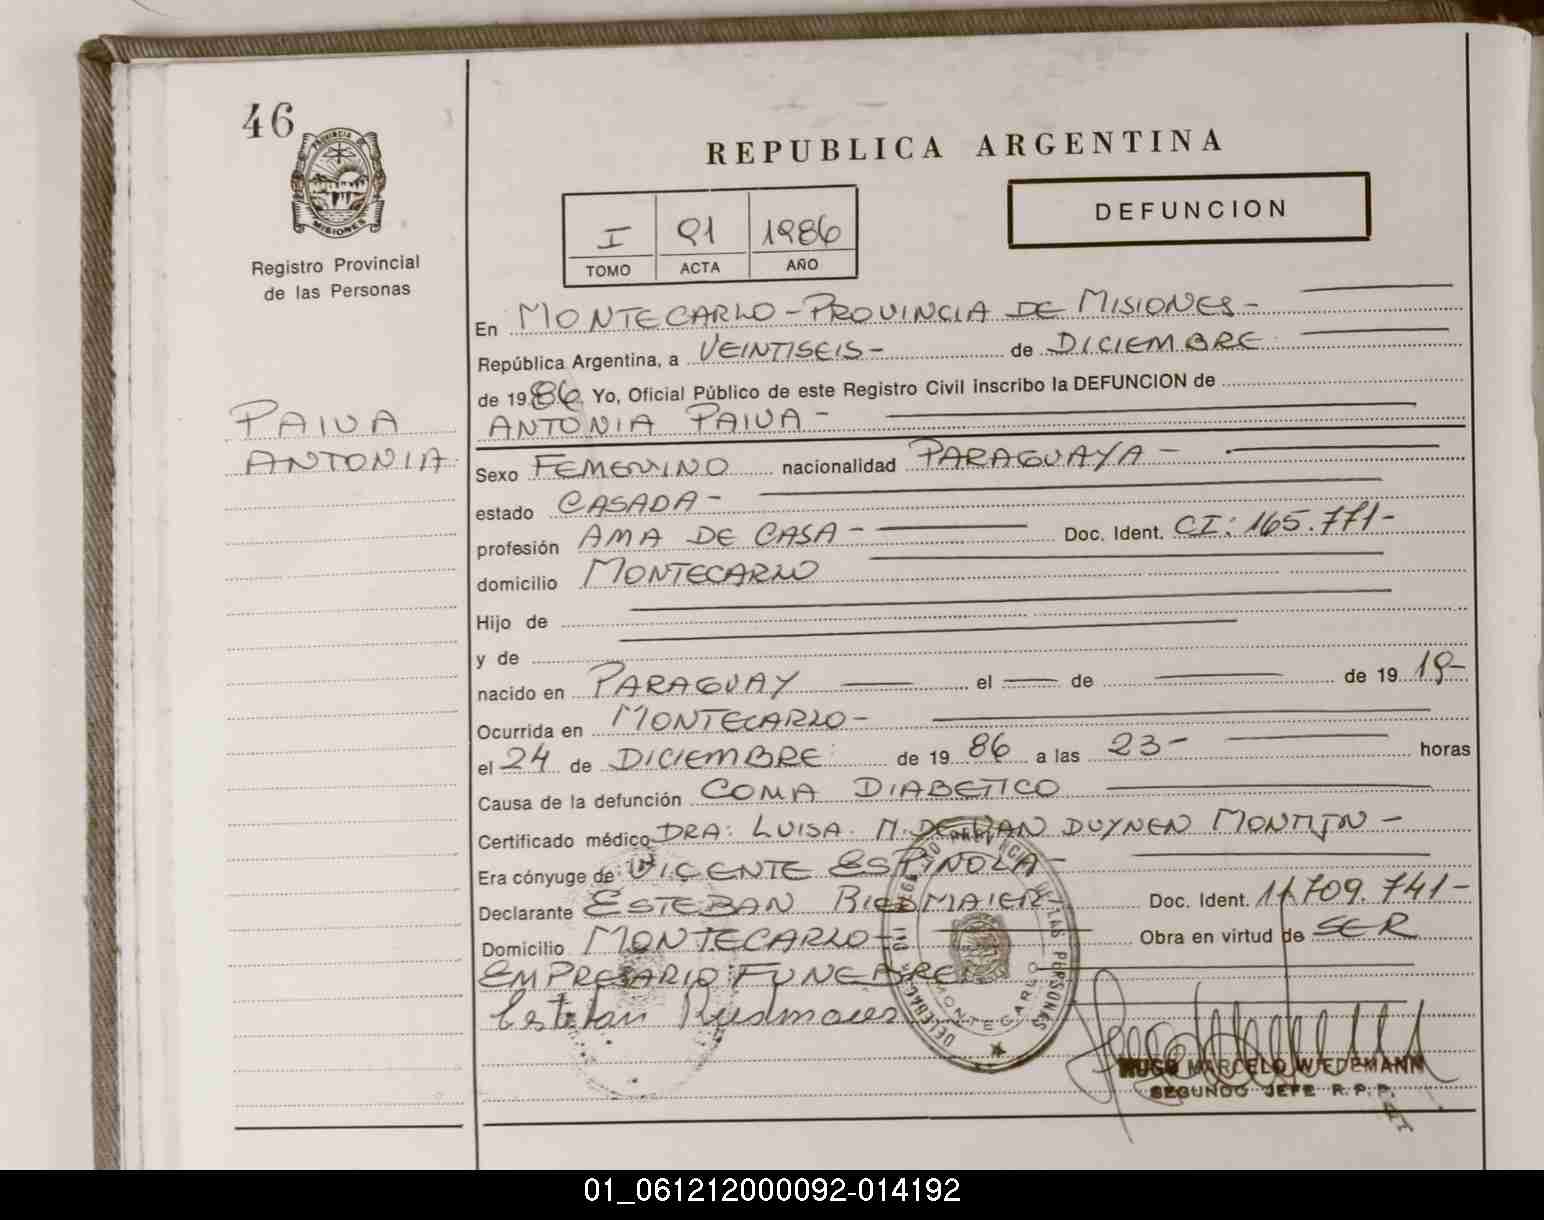 46
PROVINCIA
MISIONES
Registro Provincial
de las Personas
PAIVA
ANTONIA
REPUBLICA ARGENTINA
I 91 1986
TOMO ACTA AÑO
DEFUNCION
En MONTECARLO - PROVINCIA DE MISIONES -
República Argentina, a VEINTISEIS - de DICIEMBRE
de 1986 Yo, Oficial Público de este Registro Civil inscribo la DEFUNCION de
ANTONIA PAIVA -
Sexo FEMENINO nacionalidad PARAGUAYA -
estado CASADA -
profesión AMA DE CASA - Doc. Ident. CI: 165.771-
domicilio MONTECARLO
Hijo de
y de
nacido en PARAGUAY el de de 19 19-
Ocurrida en MONTECARLO -
el 24 de DICIEMBRE de 19 86 a las 23 - horas
Causa de la defunción COMA DIABETICO
Certificado médico DRA: LUISA. M. DE VAN DUYNEN MONTIJN -
Era cónyuge de VICENTE ESPINOLA -
Declarante ESTEBAN RIEDMAIER - Doc. Ident. 11.709.741-
Domicilio MONTECARLO - Obra en virtud de SER
EMPRESARIO FUNEBRE
Esteban Riedmaier
MONTECARLO
HUGO MARCELO WIEDEMANN
SEGUNDO JEFE R. P. P.
01_061212000092-014192